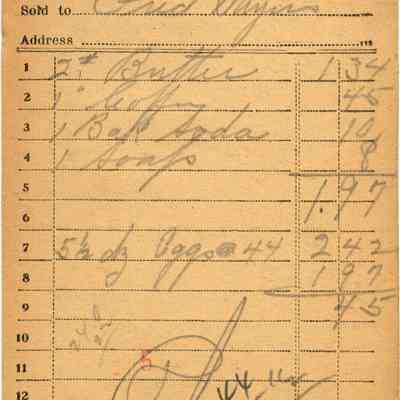 Sold to Fred Sayers
Address
1 2# Butter 1 34
2 1" Coffey 45
3 1 Bak Soda 10
4 1 Soap 8
5 1.97
6
7 5½ dz Eggs @ 44 2 42
8 1 97
9 45
10
11 5
12 44